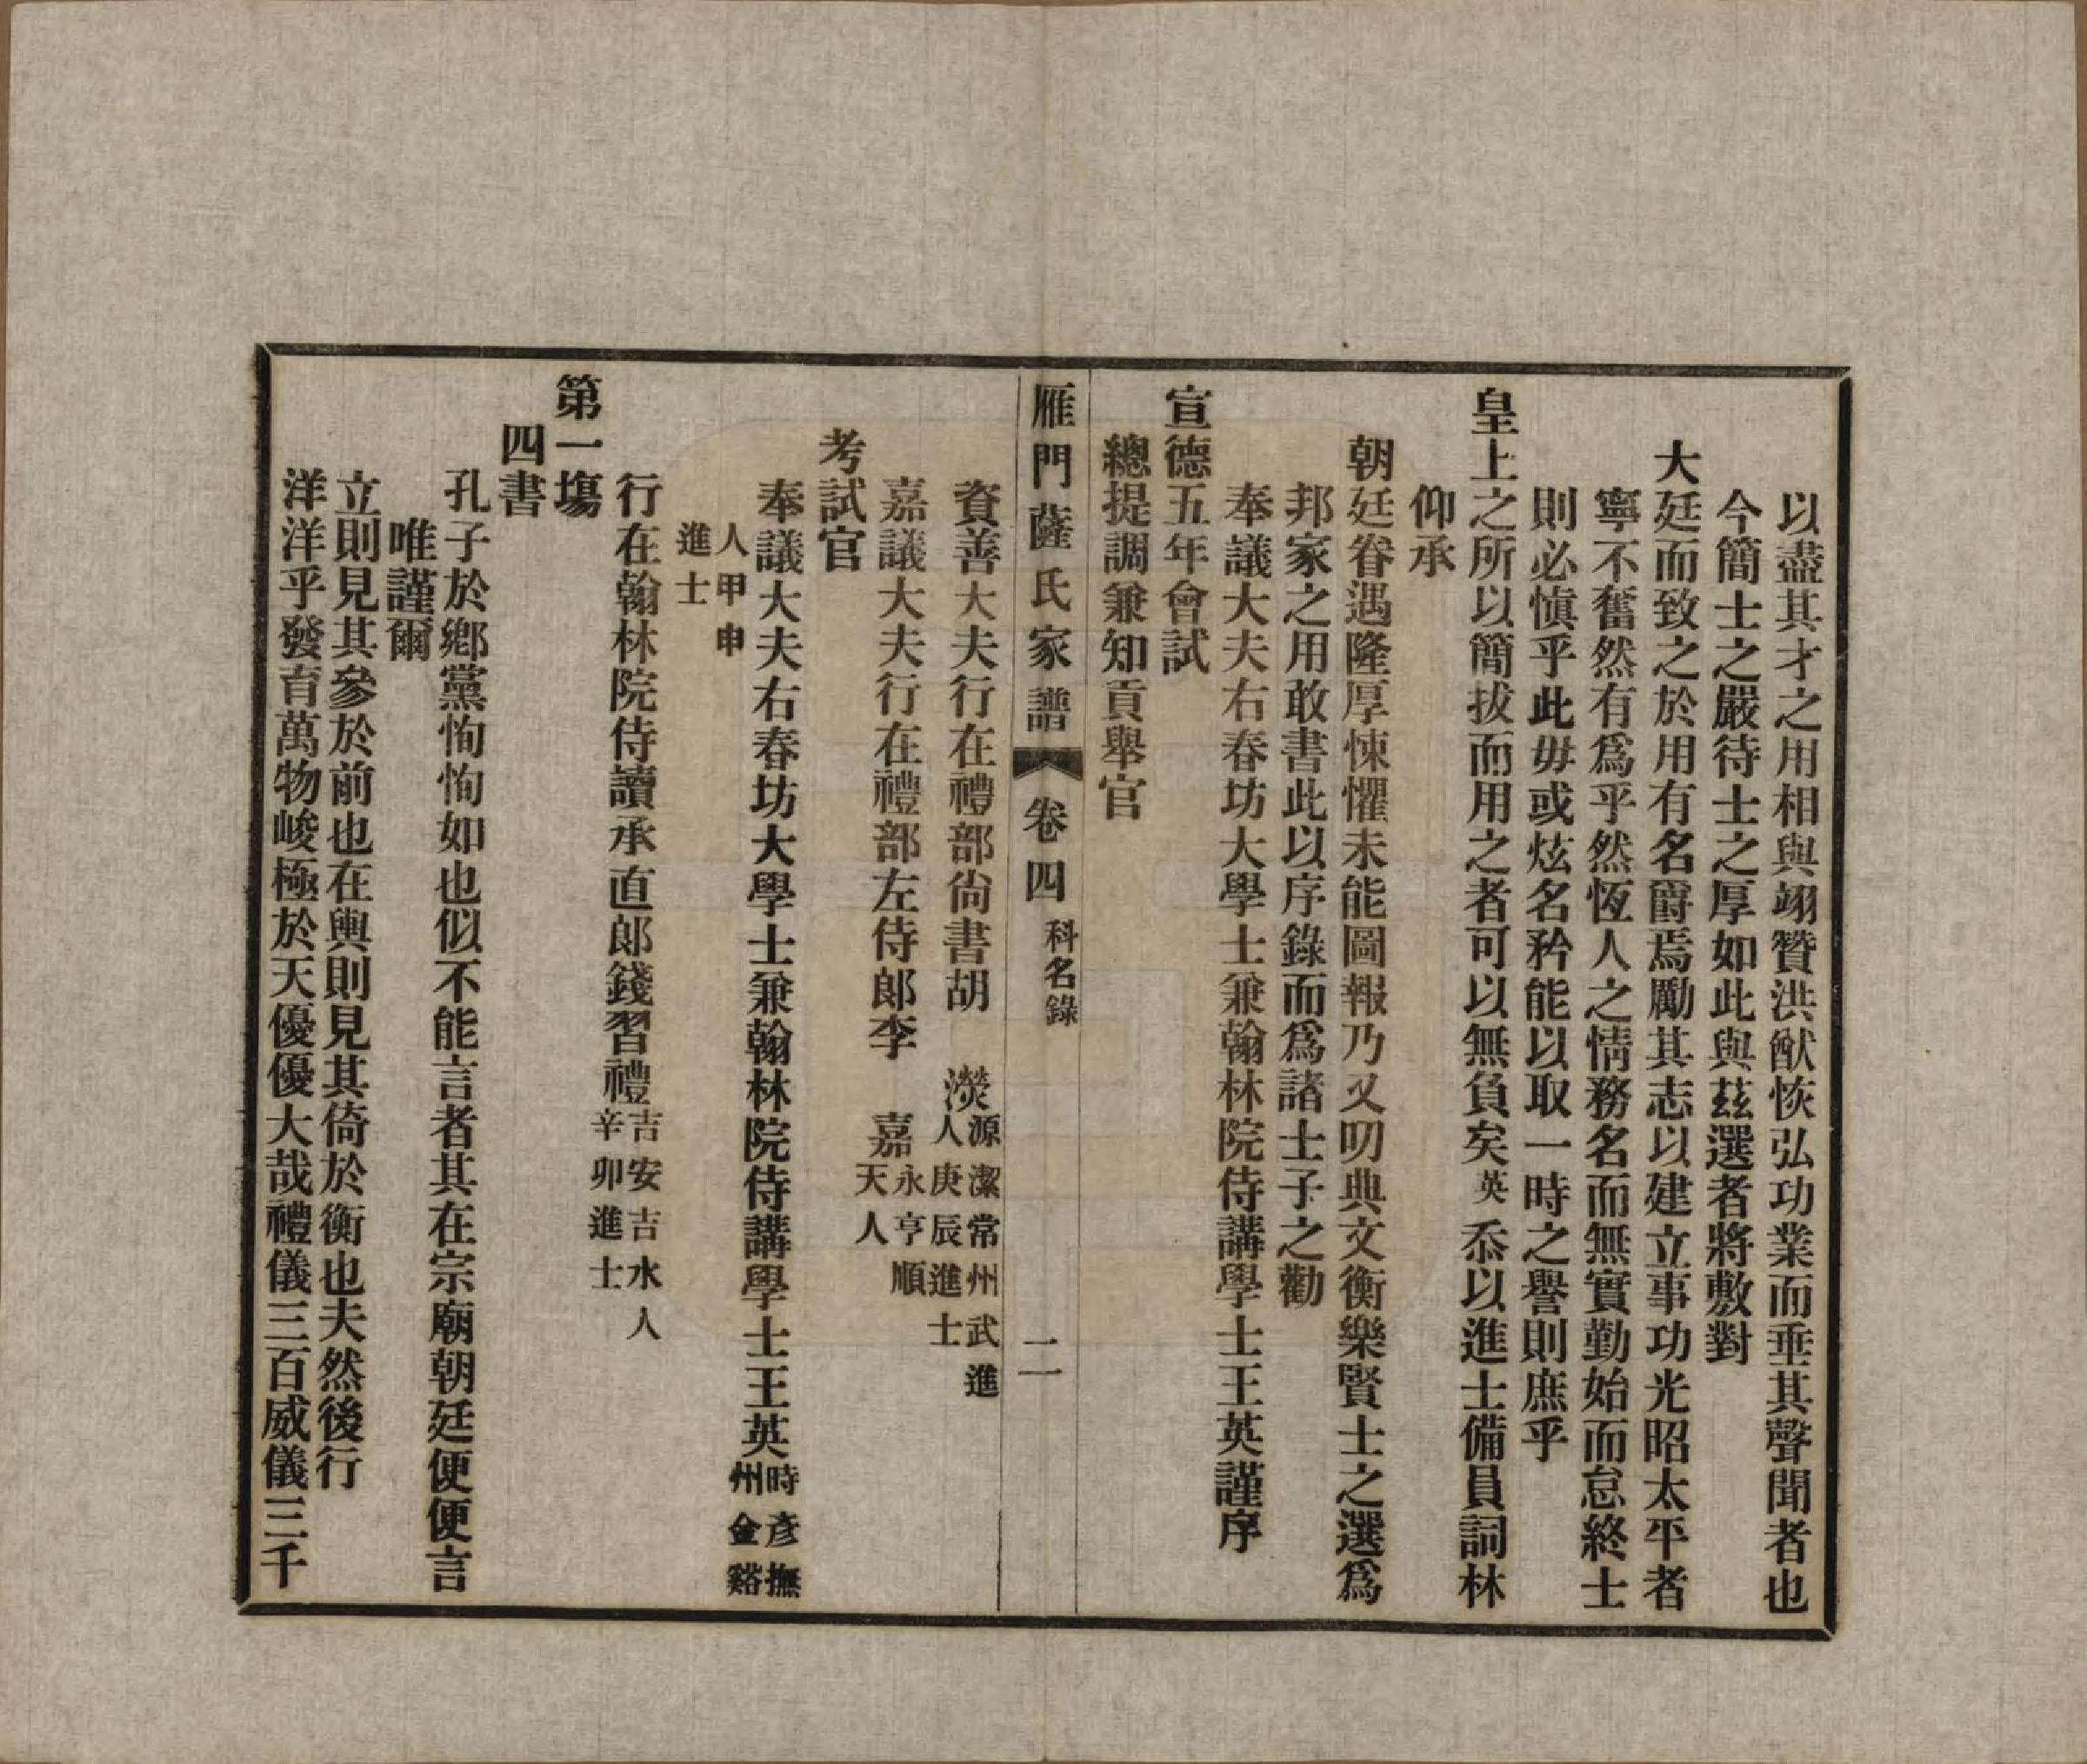 以盡其才之用相與翊贊洪猷恢弘功業而垂其聲聞者也
今簡士之嚴待士之厚如此與茲選者將敷對
大廷而致之於用有名爵焉勵其志以建立事功光昭太平者
寧不奮然有爲乎然恆人之情務名而無實勤始而怠終士
則必慎乎此毋或炫名矜能以取一時之譽則庶乎
皇上之所以簡拔而用之者可以無負矣英忝以進士備員詞林
仰承
朝廷眷遇隆厚悚懼未能圖報乃又叨典文衡樂賢士之選爲
邦家之用敢書此以序錄而爲諸士子之勸
奉議大夫右春坊大學士兼翰林院侍講學士王英謹序
宣德五年會試
總提調兼知貢舉官
雁門薩氏家譜 卷四 科名錄 二
資善大夫行在禮部尚書胡 濙 源潔常州武進
人庚辰進士
嘉議大夫行在禮部左侍郎李 嘉 永亨順
天人
考試官
奉議大夫右春坊大學士兼翰林院侍講學士王英 時彥撫
州金谿
人甲申
進士
行在翰林院侍讀承直郎錢習禮 吉安吉水人
辛卯進士
第一塲
四書
孔子於鄉黨恂恂如也似不能言者其在宗廟朝廷便便言
唯謹爾
立則見其參於前也在輿則見其倚於衡也夫然後行
洋洋乎發育萬物峻極於天優優大哉禮儀三百威儀三千